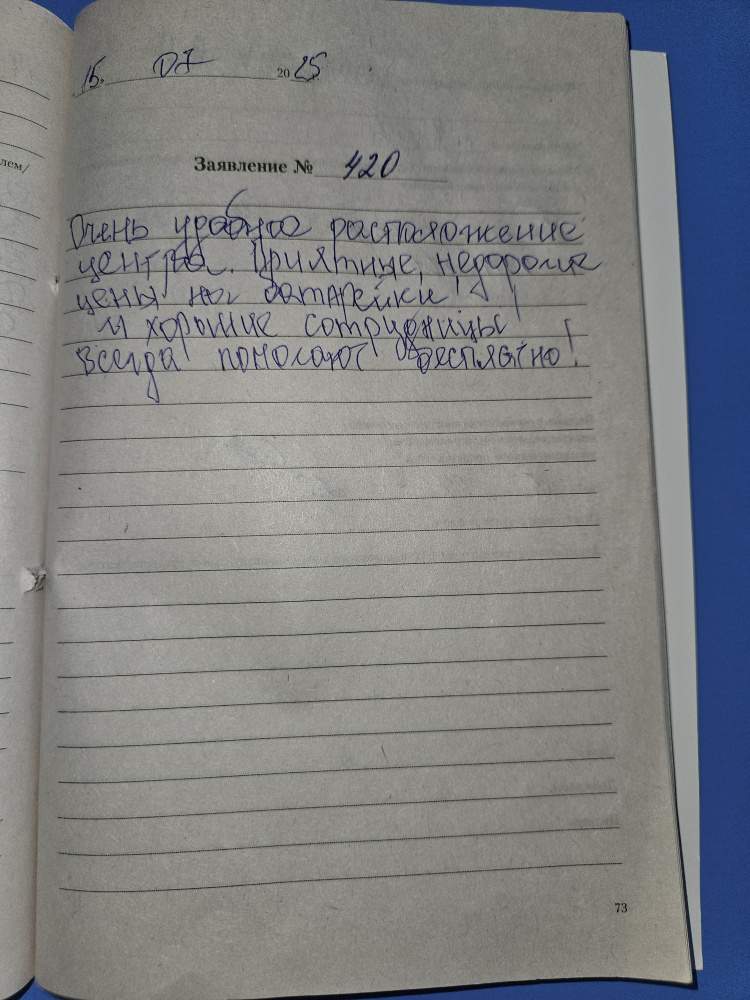 15. 07 2025
Заявление № 420
Очень удобное расположение
центра. Приятные, недорогие
цены на батарейки!
и хорошие сотрудницы!
Всегда помогают бесплатно!
лем/
73